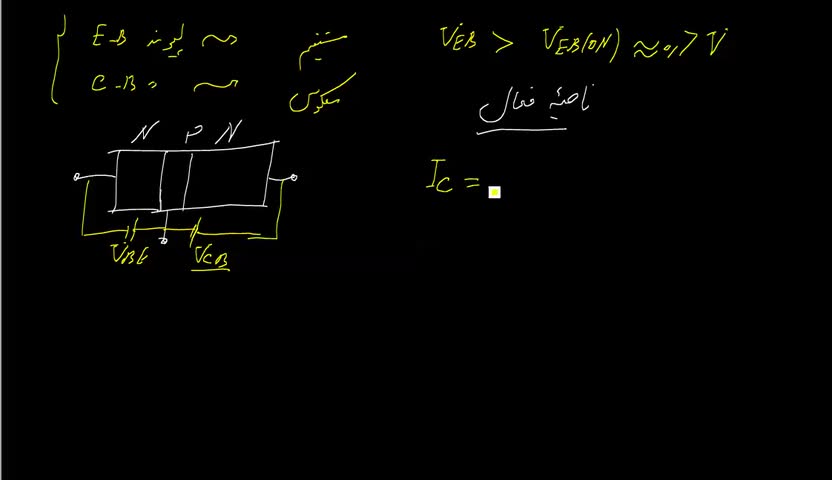 E-B پیوند مستقیم
C-B معکوس
V_EB > V_EB(ON) ≈ 0,7 V
ناحیه فعال
N P N
I_C =
V_BE V_CB